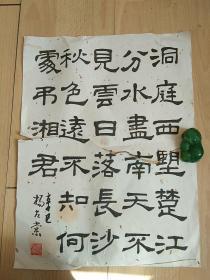 洞庭西望楚江
分水盡南天不
見雲日落長沙
秋色遠不知何
處弔湘君
辛巳